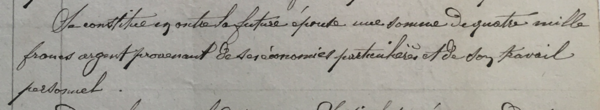 Se constitue en outre la future épouse une somme de quatre mille
francs argent provenant de ses économies particulières et de son travail
personnel.